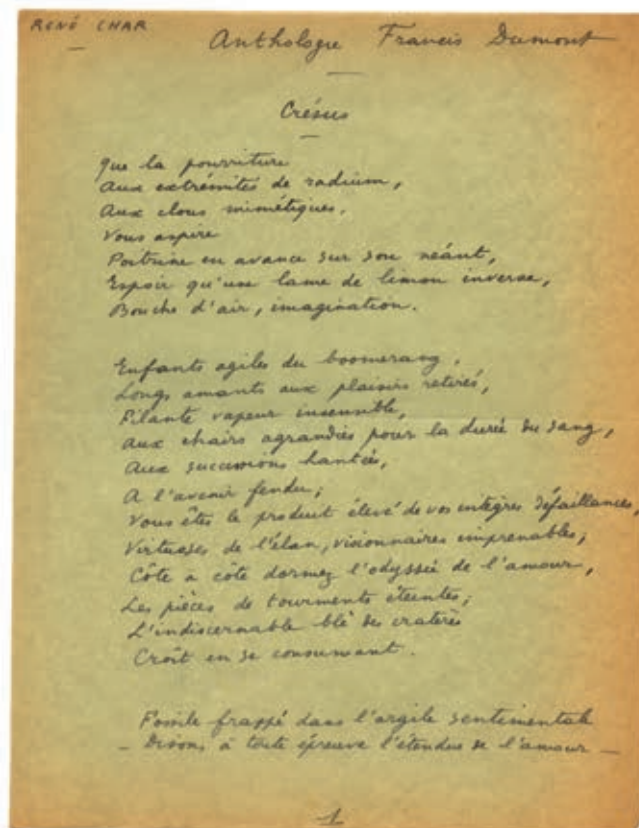 RENÉ CHAR
Anthologie Francis Dumont
Crésus
Que la pourriture
Aux extrémités de radium,
Aux clous mimétiques,
Vous aspire
Poitrine en avance sur son néant,
Espoir qu'une lame de limon inverse,
Bouche d'air, imagination.
Enfants agiles du boomerang,
Longs amants aux plaisirs retirés,
Filante vapeur insensible,
Aux chairs agrandies pour la durée du sang,
Aux successions hantées,
A l'avenir fendu;
Vous êtes le produit élevé de vos intègres défaillances,
Virtuoses de l'élan, visionnaires imprenables,
Côte à côte dormez l'odyssée de l'amour,
Les pièges de tourments éteintes;
L'indiscernable blé des cratères
Croît en se consumant.
Fossile frappé dans l'argile sentimentale
— Disons à toute épreuve l'étendue de l'amour —
1